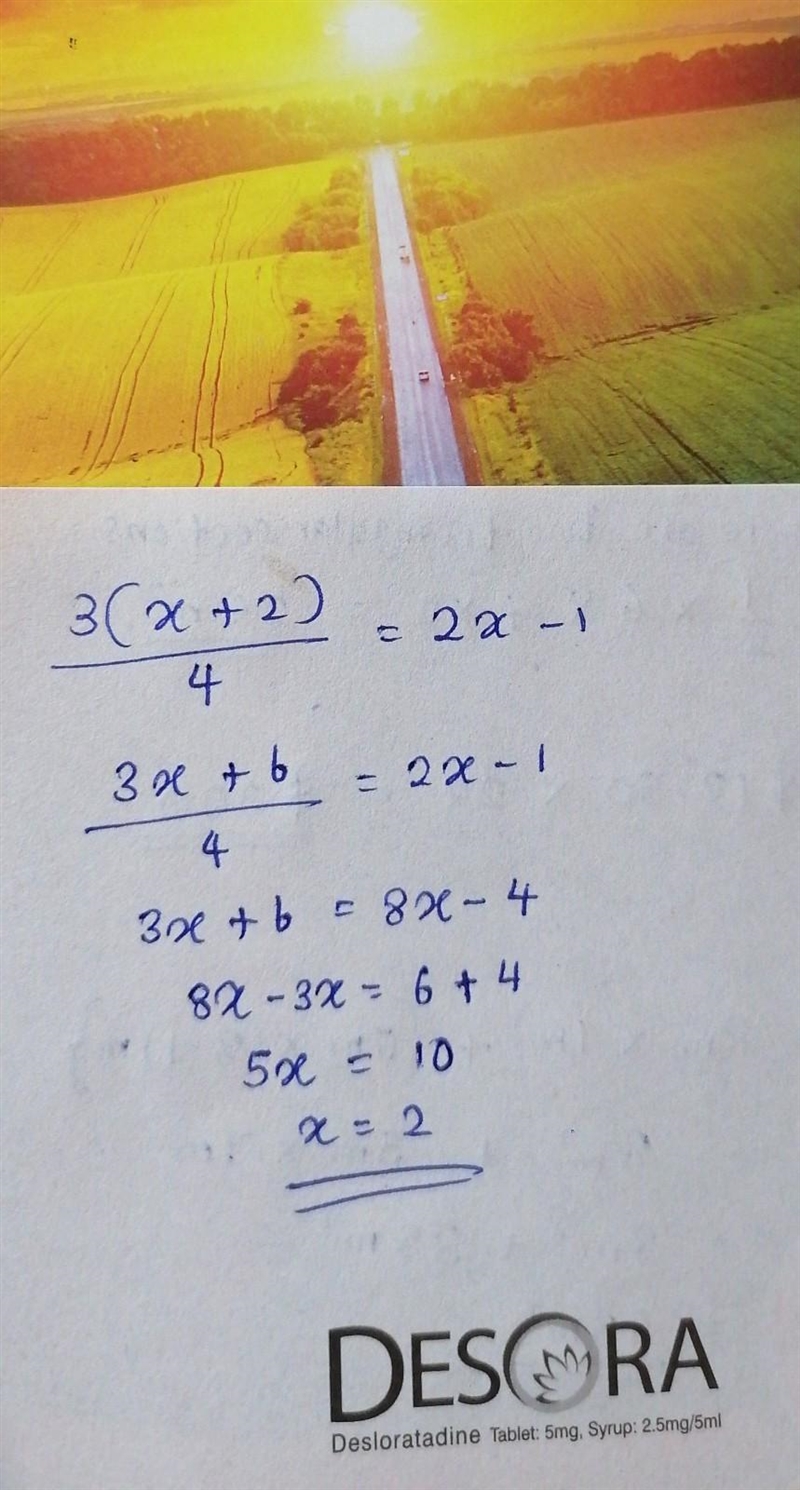 3(x + 2)/4 = 2x - 1
3x + 6/4 = 2x - 1
3x + 6 = 8x - 4
8x - 3x = 6 + 4
5x = 10
x = 2
DESORA
Desloratadine Tablet: 5mg, Syrup: 2.5mg/5ml